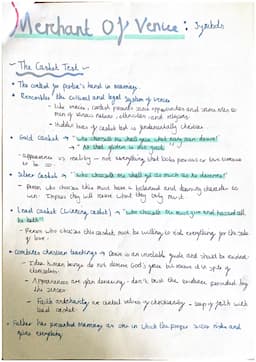 Merchant Of Venice : Symbols
- The Casket Test -
• The contest for portia's hand in marriage.
• Resembles the cultural and legal system of Venice
- Like venice, contest presents same opportunities and same rules to
men of various nations, ethnicities and religions.
- Hidden bias of casket test is fundamentally christian.
• Gold casket → "who chooseth me shall gain what many men desire"
→ All that glisters is not gold
- appearance vs reality - not everything that looks precious or has
to be so.
• Silver casket → "who chooseth me shall get as much as he deserves"
- Person who chooses this must have a balanced and deserving character to
win. Implies they will know what they truly
• Lead casket (winning casket) → "who chooseth me must give and hazard all
he hath"
- Person who chooses this casket must be willing to risk everything for the sake
of love.
• Combines christian teachings → desire is an unreliable guide and should be
- Idea: human beings do not deserve God's grace but receive it in spite of
themselves.
- Appearances are often deceiving - don't trust the evidence provided by
the senses
- Faith and charity are central values of christianity - leap of faith with
lead casket.
• Father has presented marriage as one in which the proper suitor risks and
gives everything